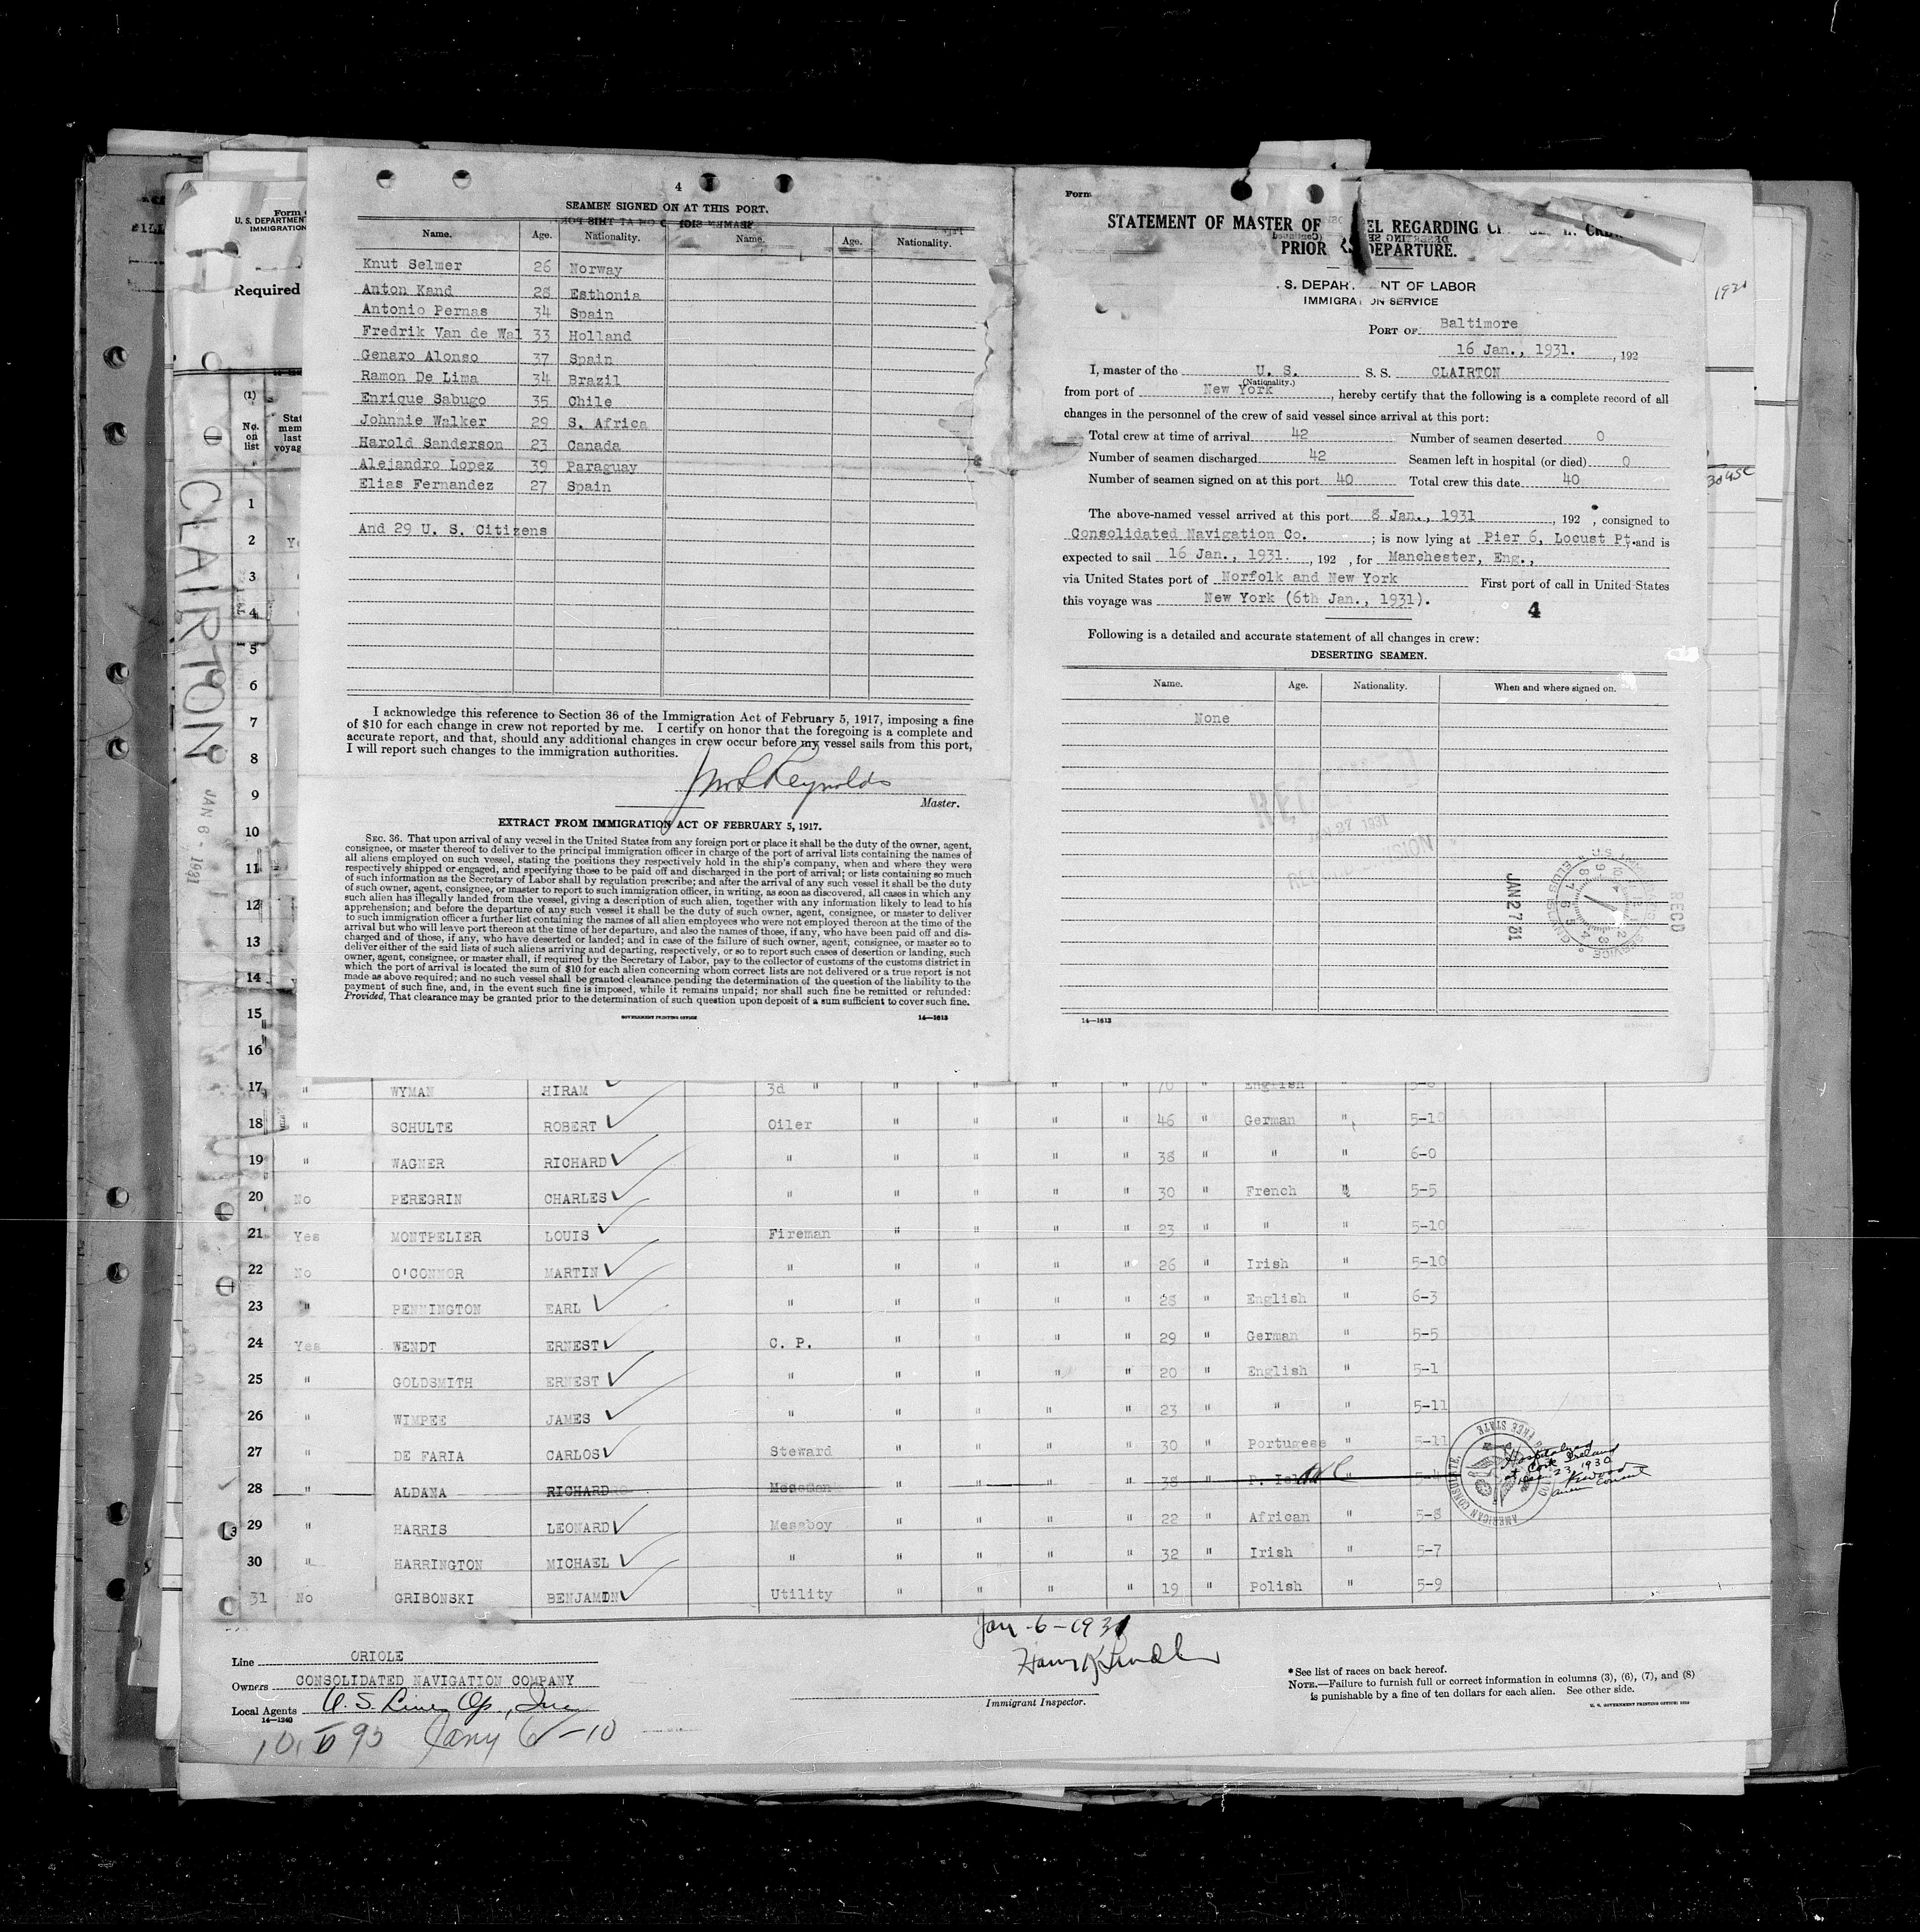 4
SEAMEN SIGNED ON AT THIS PORT.
Name. Age. Nationality. Name. Age. Nationality.
Knut Selmer 26 Norway
Anton Kand 28 Esthonia
Antonio Pernas 34 Spain
Fredrik Van de Wal 33 Holland
Genaro Alonso 37 Spain
Ramon De Lima 34 Brazil
Enrique Sabugo 35 Chile
Johnnie Walker 29 S. Africa
Harold Sanderson 23 Canada
Alejandro Lopez 39 Paraguay
Elias Fernandez 27 Spain
And 29 U. S. Citizens
I acknowledge this reference to Section 36 of the Immigration Act of February 5, 1917, imposing a fine
of $10 for each change in crew not reported by me. I certify on honor that the foregoing is a complete and
accurate report, and that, should any additional changes in crew occur before my vessel sails from this port,
I will report such changes to the immigration authorities.
Reynolds
Master.
EXTRACT FROM IMMIGRATION ACT OF FEBRUARY 5, 1917.
SEC. 36. That upon arrival of any vessel in the United States from any foreign port or place it shall be the duty of the owner, agent,
consignee, or master thereof to deliver to the principal immigration officer in charge of the port of arrival lists containing the names of
all aliens employed on such vessel, stating the positions they respectively hold in the ship's company, when and where they were
respectively shipped or engaged, and specifying those to be paid off and discharged in the port of arrival; or lists containing so much
of such information as the Secretary of Labor shall by regulation prescribe; and after the arrival of any such vessel it shall be the duty
of such owner, agent, consignee, or master to report to such immigration officer, in writing, as soon as discovered, all cases in which any
such alien has illegally landed from the vessel, giving a description of such alien, together with any information likely to lead to his
apprehension; and before the departure of any such vessel it shall be the duty of such owner, agent, consignee, or master to deliver
to such immigration officer a further list containing the names of all alien employees who were not employed thereon at the time of the
arrival but who will leave port thereon at the time of her departure, and also the names of those, if any, who have been paid off and dis-
charged and of those, if any, who have deserted or landed; and in case of the failure of such owner, agent, consignee, or master so to
deliver either of the said lists of such aliens arriving and departing, respectively, or so to report such cases of desertion or landing, such
owner, agent, consignee, or master shall, if required by the Secretary of Labor, pay to the collector of customs of the customs district in
which the port of arrival is located the sum of $10 for each alien concerning whom correct lists are not delivered or a true report is not
made as above required; and no such vessel shall be granted clearance pending the determination of the question of the liability to the
payment of such fine, and, in the event such fine is imposed, while it remains unpaid; nor shall such fine be remitted or refunded:
Provided, That clearance may be granted prior to the determination of such question upon deposit of a sum sufficient to cover such fine.
GOVERNMENT PRINTING OFFICE 14—1613
Form
STATEMENT OF MASTER OF EL REGARDING
PRIOR DEPARTURE.
S. DEPAR NT OF LABOR
IMMIGRATION SERVICE
PORT OF Baltimore
16 Jan., 1931. , 192
I, master of the U. S. S. S. CLAIRTON
(Nationality.)
from port of New York , hereby certify that the following is a complete record of all
changes in the personnel of the crew of said vessel since arrival at this port:
Total crew at time of arrival 42 Number of seamen deserted 0
Number of seamen discharged 42 Seamen left in hospital (or died) 0
Number of seamen signed on at this port 40 Total crew this date 40
The above-named vessel arrived at this port 8 Jan., 1931 , 192 , consigned to
Consolidated Navigation Co. ; is now lying at Pier 6, Locust Pt. and is
expected to sail 16 Jan., 1931. , 192 , for Manchester, Eng.,
via United States port of Norfolk and New York First port of call in United States
this voyage was New York (6th Jan., 1931).
4
Following is a detailed and accurate statement of all changes in crew:
DESERTING SEAMEN.
Name. Age. Nationality. When and where signed on.
None
JAN 27 1931
JAN 27 31
REC'D
14—1613
Form
U. S. DEPARTMENT
IMMIGRATION
Required
(1)
No. on list
CLAIRTON
JAN 6 - 1931
1
2
3
4
5
6
7
8
9
10
11
12
13
14
15
16
17 " WYMAN HIRAM 3d " " " " " 70 " English "
18 " SCHULTE ROBERT Oiler " " " " 46 " German " 5-10
19 " WAGNER RICHARD " " " " " 38 " " " 6-0
20 No PEREGRIN CHARLES " " " " " 30 " French " 5-5
21 Yes MONTPELIER LOUIS Fireman " " " " 23 " " " 5-10
22 No O'CONNOR MARTIN " " " " " 26 " Irish " 5-10
23 " PENNINGTON EARL " " " " " 28 " English " 6-3
24 Yes WENDT ERNEST C. P. " " " " 29 " German " 5-5
25 " GOLDSMITH ERNEST " " " " " 20 " English " 5-1
26 " WIMPEE JAMES " " " " " 23 " " " 5-11
27 " DE FARIA CARLOS Steward " " " " 30 " Portugese " 5-11
28 " ALDANA RICHARD Messman " " " " 38 " "
AMERICAN CONSULATE, FREE STATE
Hospitalized
at Cork Ireland
Dec. 23, 1930
29 " HARRIS LEONARD Messboy " " " " 22 " African " 5-8
30 " HARRINGTON MICHAEL " " " " " 32 " Irish " 5-7
31 No GRIBONSKI BENJAMIN Utility " " " " 19 " Polish " 5-9
Jan-6-1931
Line ORIOLE
Owners CONSOLIDATED NAVIGATION COMPANY
Local Agents U. S. Lines Op., Inc.
14—1240
Immigrant Inspector.
*See list of races on back hereof.
NOTE.—Failure to furnish full or correct information in columns (3), (6), (7), and (8)
is punishable by a fine of ten dollars for each alien. See other side.